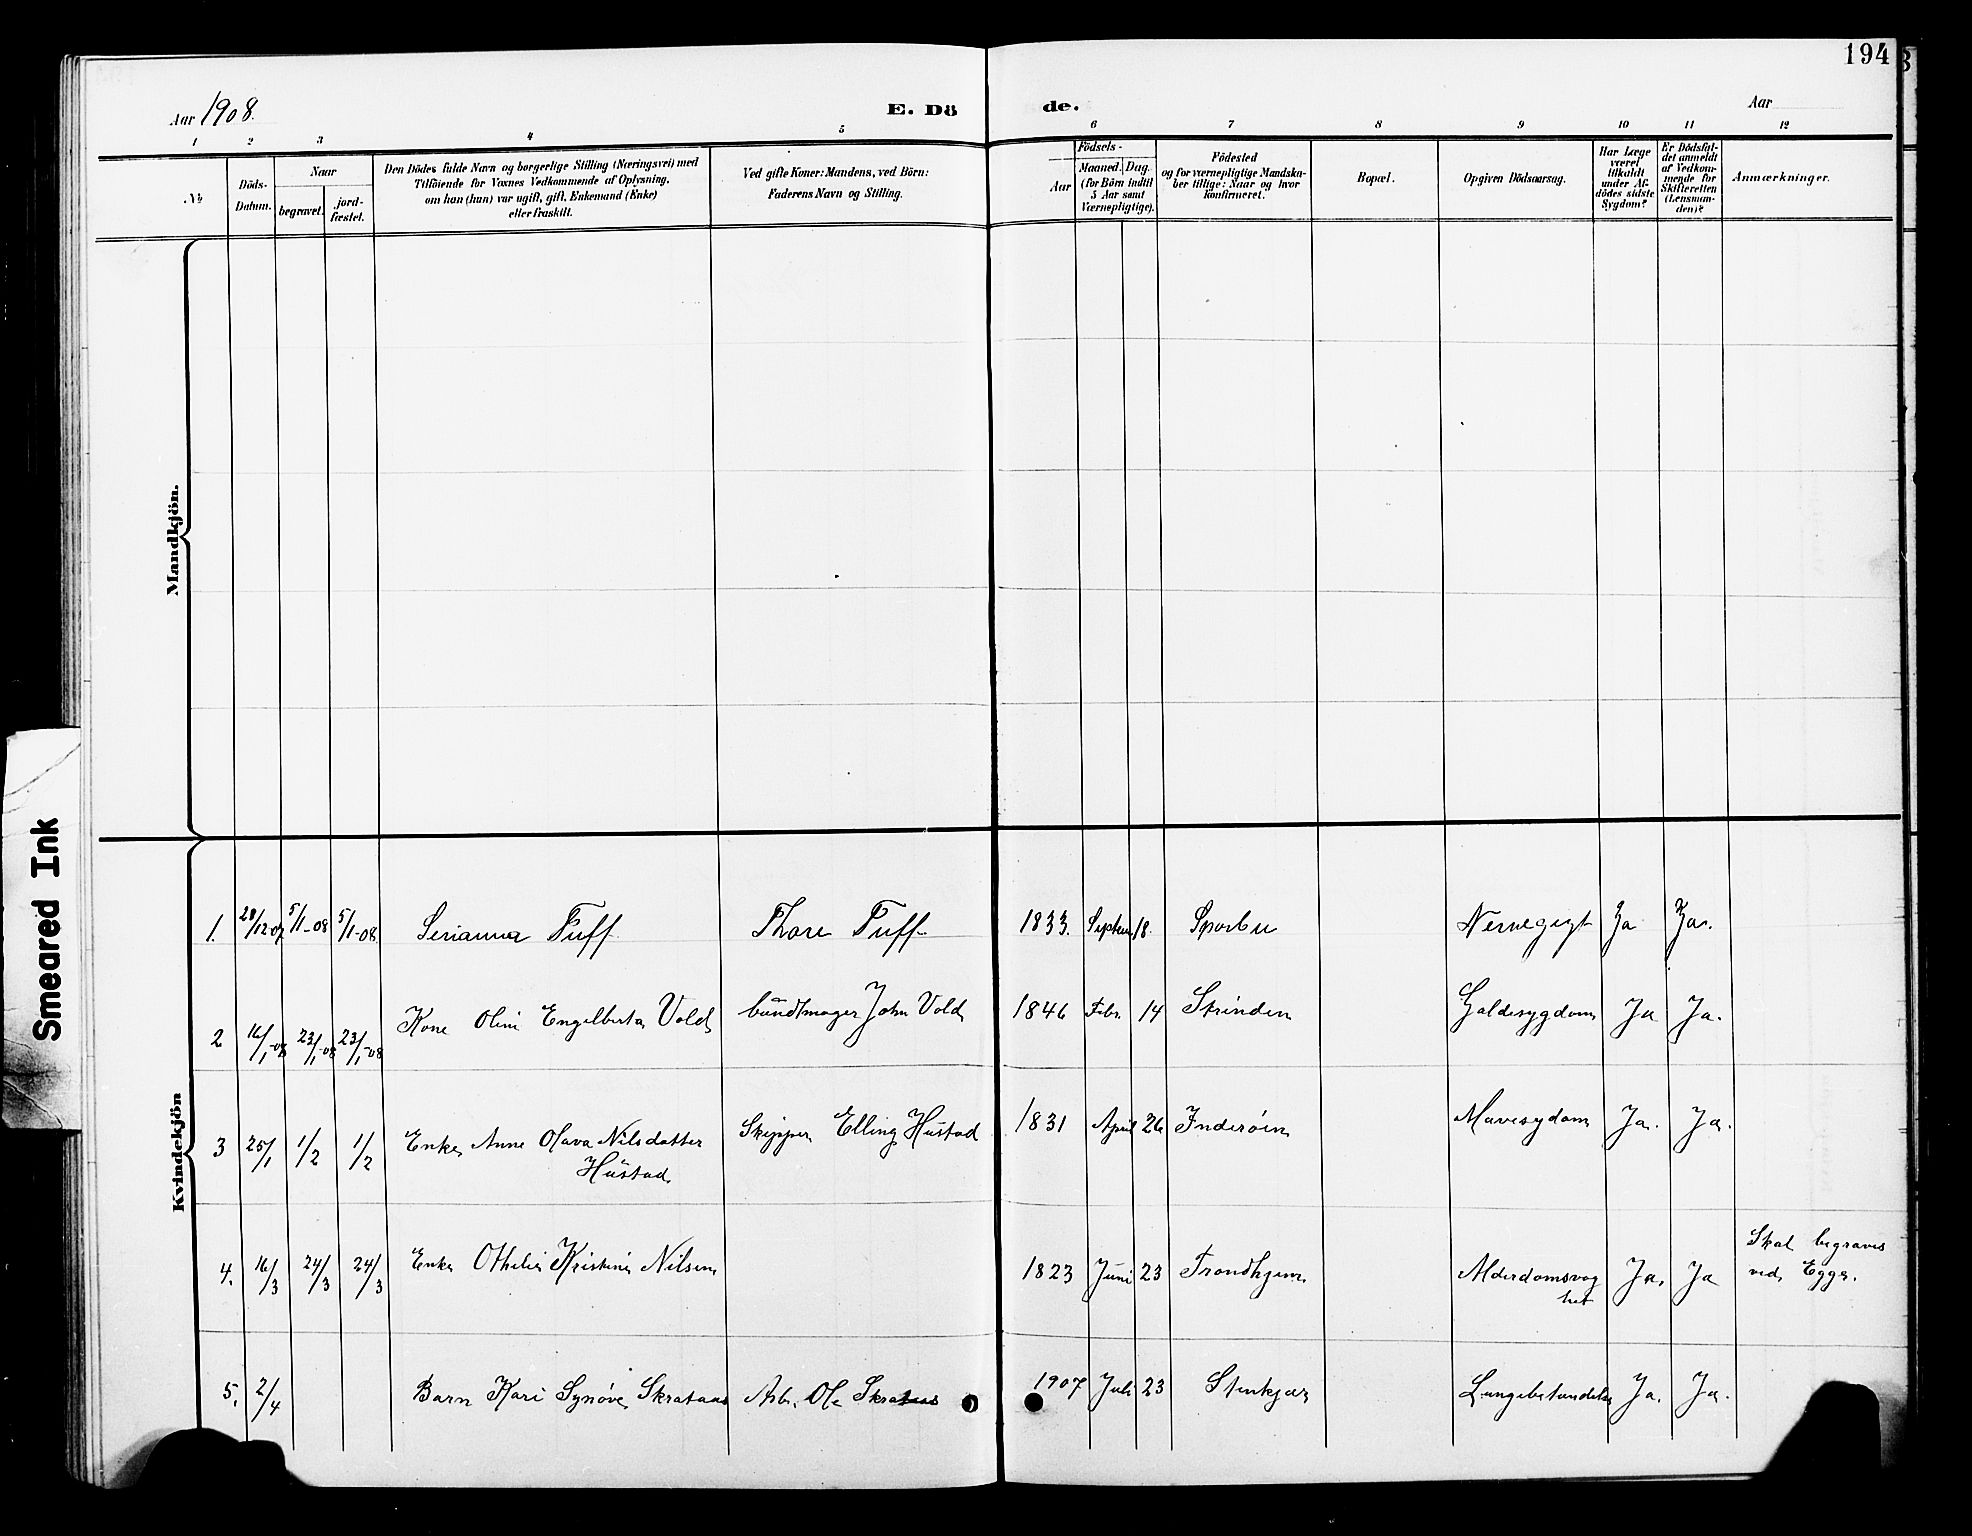 194
Aar 1908.
E. Dö
de.
Aar
1 2 3 4 5 6 7 8 9 10 11 12
№
Döds-
Datum.
Naar
begravet.
jord-
fæstet.
Den Dödes fulde Navn og borgerlige Stilling (Næringsvei) med
Tilföiende for Voxnes Vedkommende af Oplysning,
om han (hun) var ugift, gift, Enkemand (Enke)
eller fraskilt.
Ved gifte Koner: Mandens, ved Börn:
Faderens Navn og Stilling.
Födsels-
Aar
Maaned.
Dag.
(for Börn indtil
5 Aar samt
Værnepligtige).
Födested
og for værnepligtige Mandska-
ber tillige: Naar og hvor
konfirmeret.
Bopæl.
Opgiven Dödsaarsag.
Har Læge
været
tilkaldt
under Af-
dödes sidste
Sygdom?
Er Dödsfal-
det anmeldt
af Vedkom-
mende for
Skifteretten
(Lensman-
den)?
Anmærkninger.
Mandkjön.
Kvindekjön
Smeared Ink
1. 28/12-07 5/1-08 5/1-08. Serianna Tuff Thore Tuff 1833. Septem. 18. Sparbu Nervegigt Ja Ja.
2 16/1-08 23/1-08 23/1-08 Kone Oline Engelberta Vold bundtmager John Vold 1846 Febr. 14 Strinden Galdesygdom Ja Ja.
3 25/1 1/2 1/2 Enke Anne Olava Nilsdatter Skipper Elling Hustad 1831 April 26 Inderøen Mavesydom Ja. Ja.
Hustad
4. 16/3 24/3 24/3 Enke Othelie Kristine Nilsen 1823 Juni 23 Trondhjem Alderdomsvag Ja. Ja Skal begraves
het
ved Egge.
5. 2/4 Barn Kari Synøve Skrataas Arb. Ole Skrataas 1907 Juli 23 Stenkjær Lungebetændelse Ja. Ja.